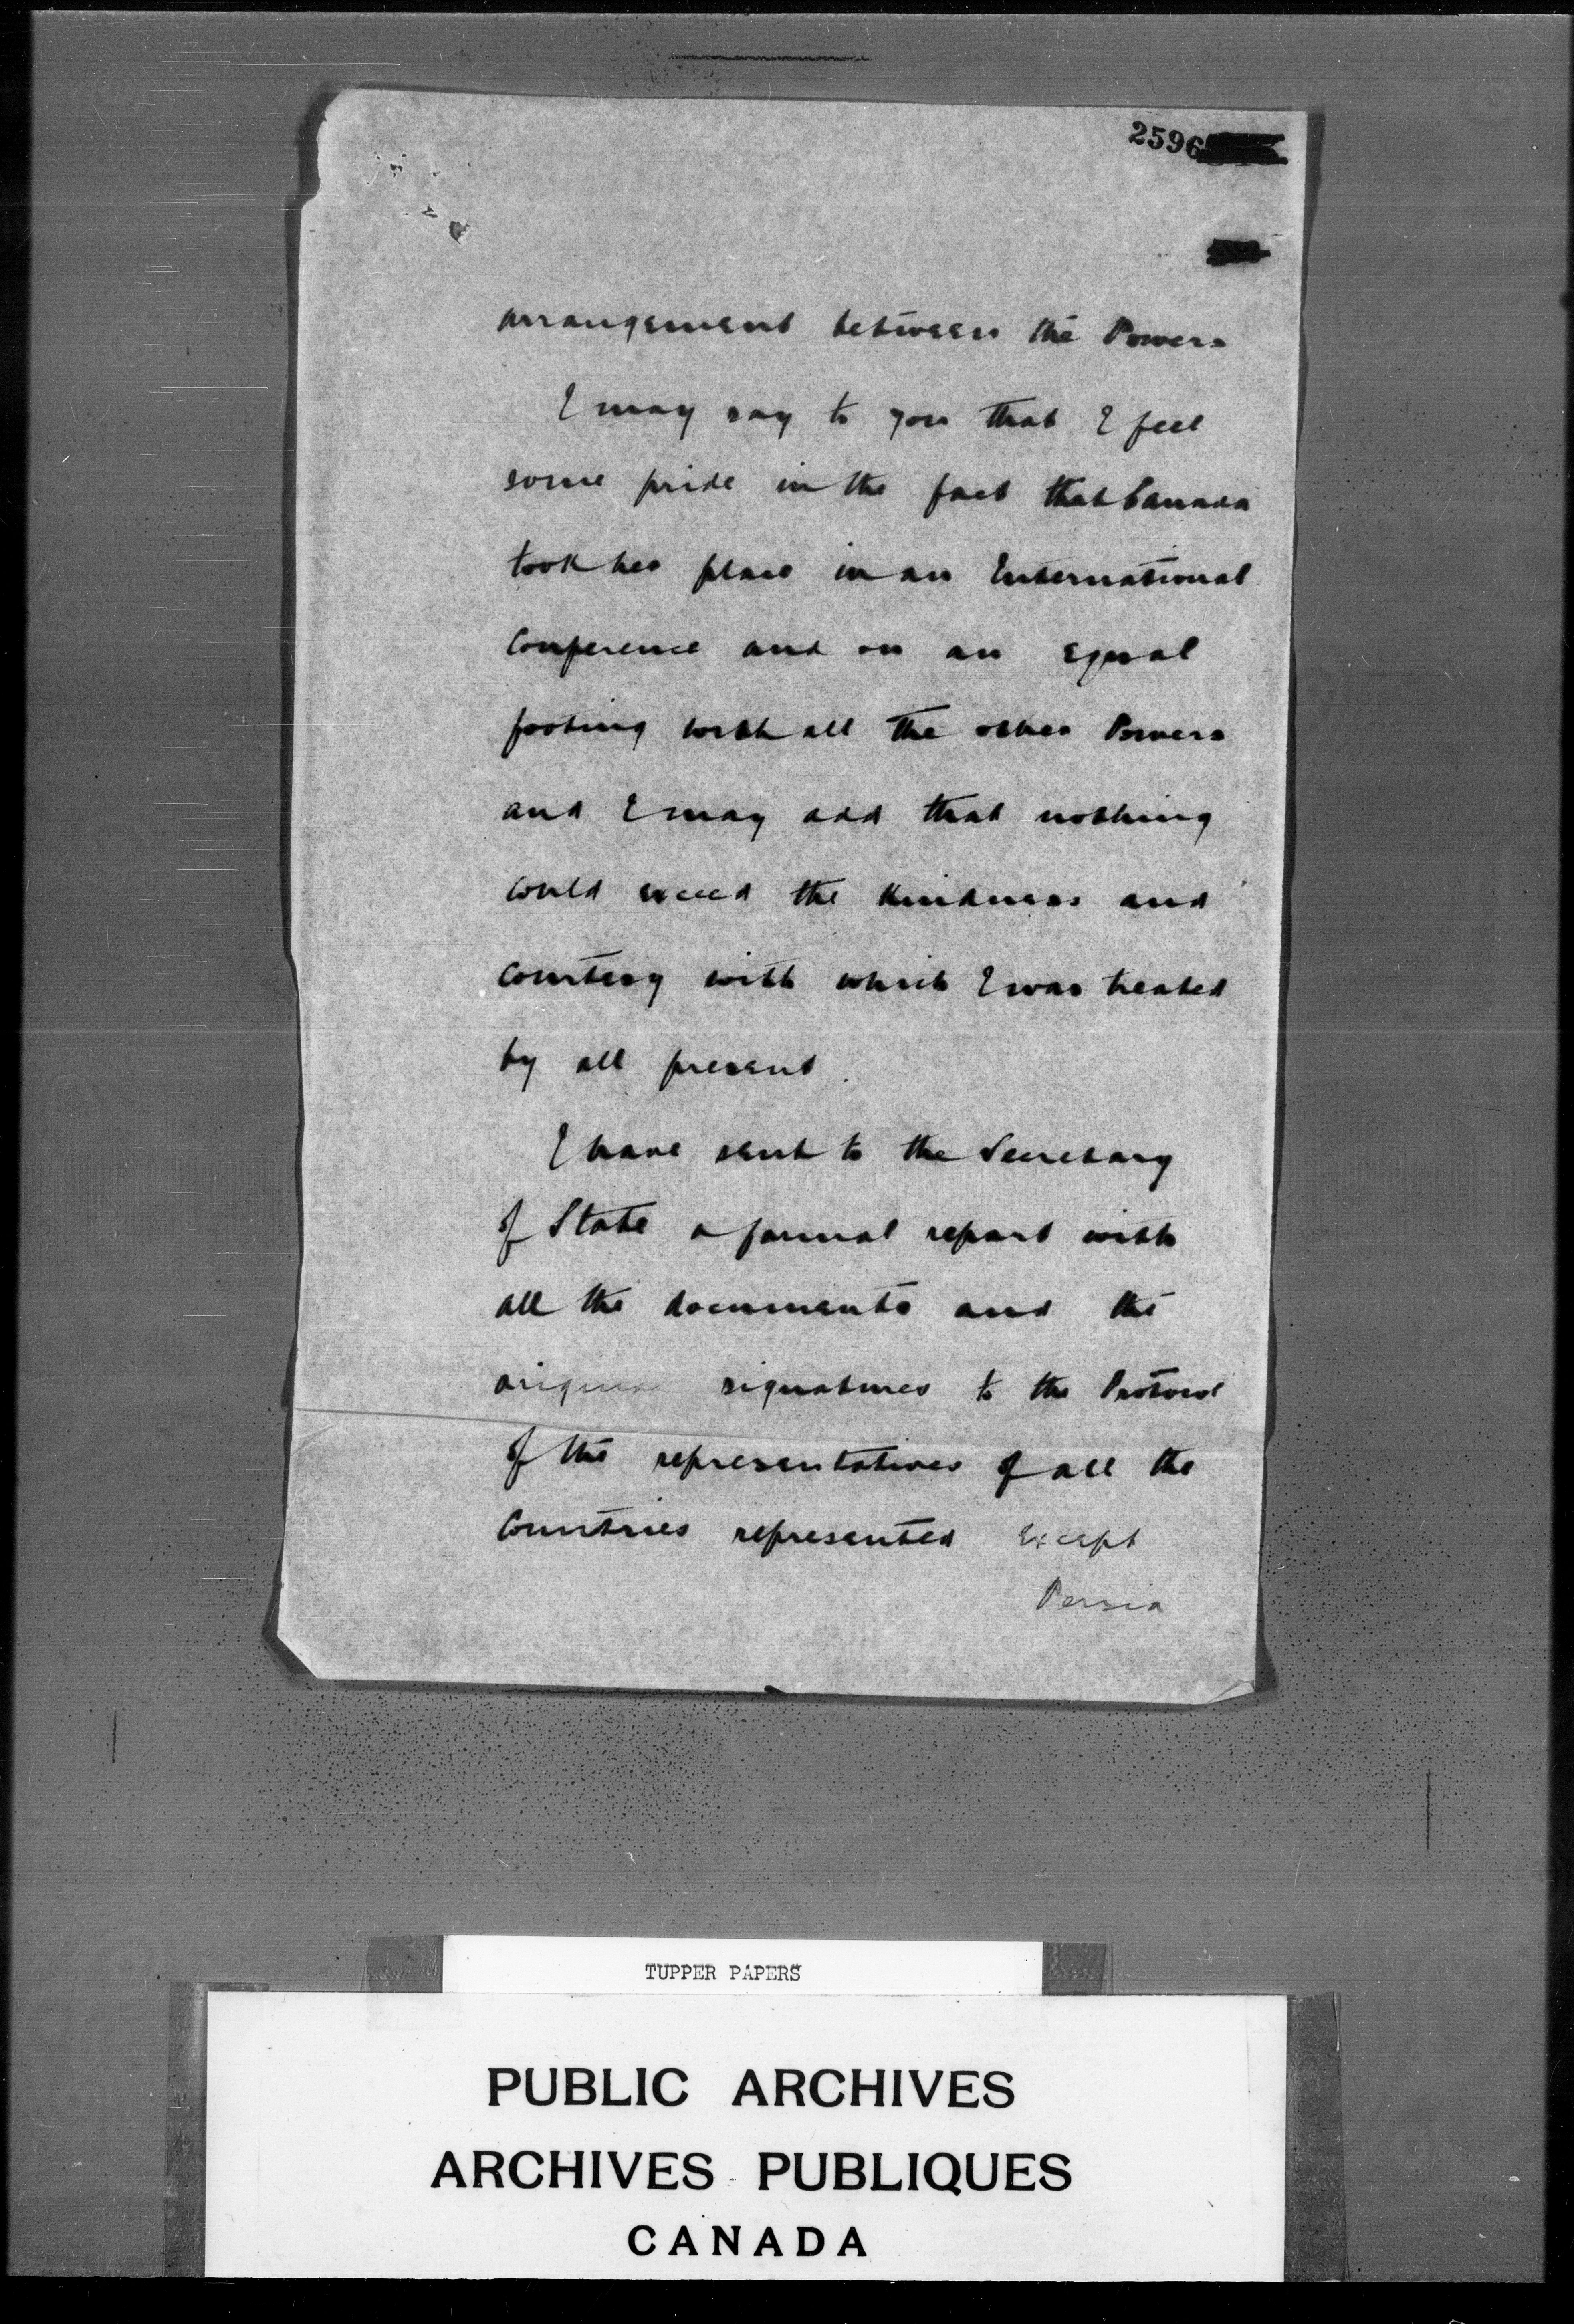 2596
arrangement between the Powers
I may say to you that I feel
some pride in the fact that Canada
took her place in an International
Conference and on an equal
footing with all the other Powers
and I may add that nothing
could exceed the kindness and
courtesy with which I was treated
by all present.
I have sent to the Secretary
of State a formal report with
all the documents and the
original signatures to the Protocol
of the representatives of all the
Countries represented except
Persia
TUPPER PAPERS
PUBLIC ARCHIVES
ARCHIVES PUBLIQUES
CANADA